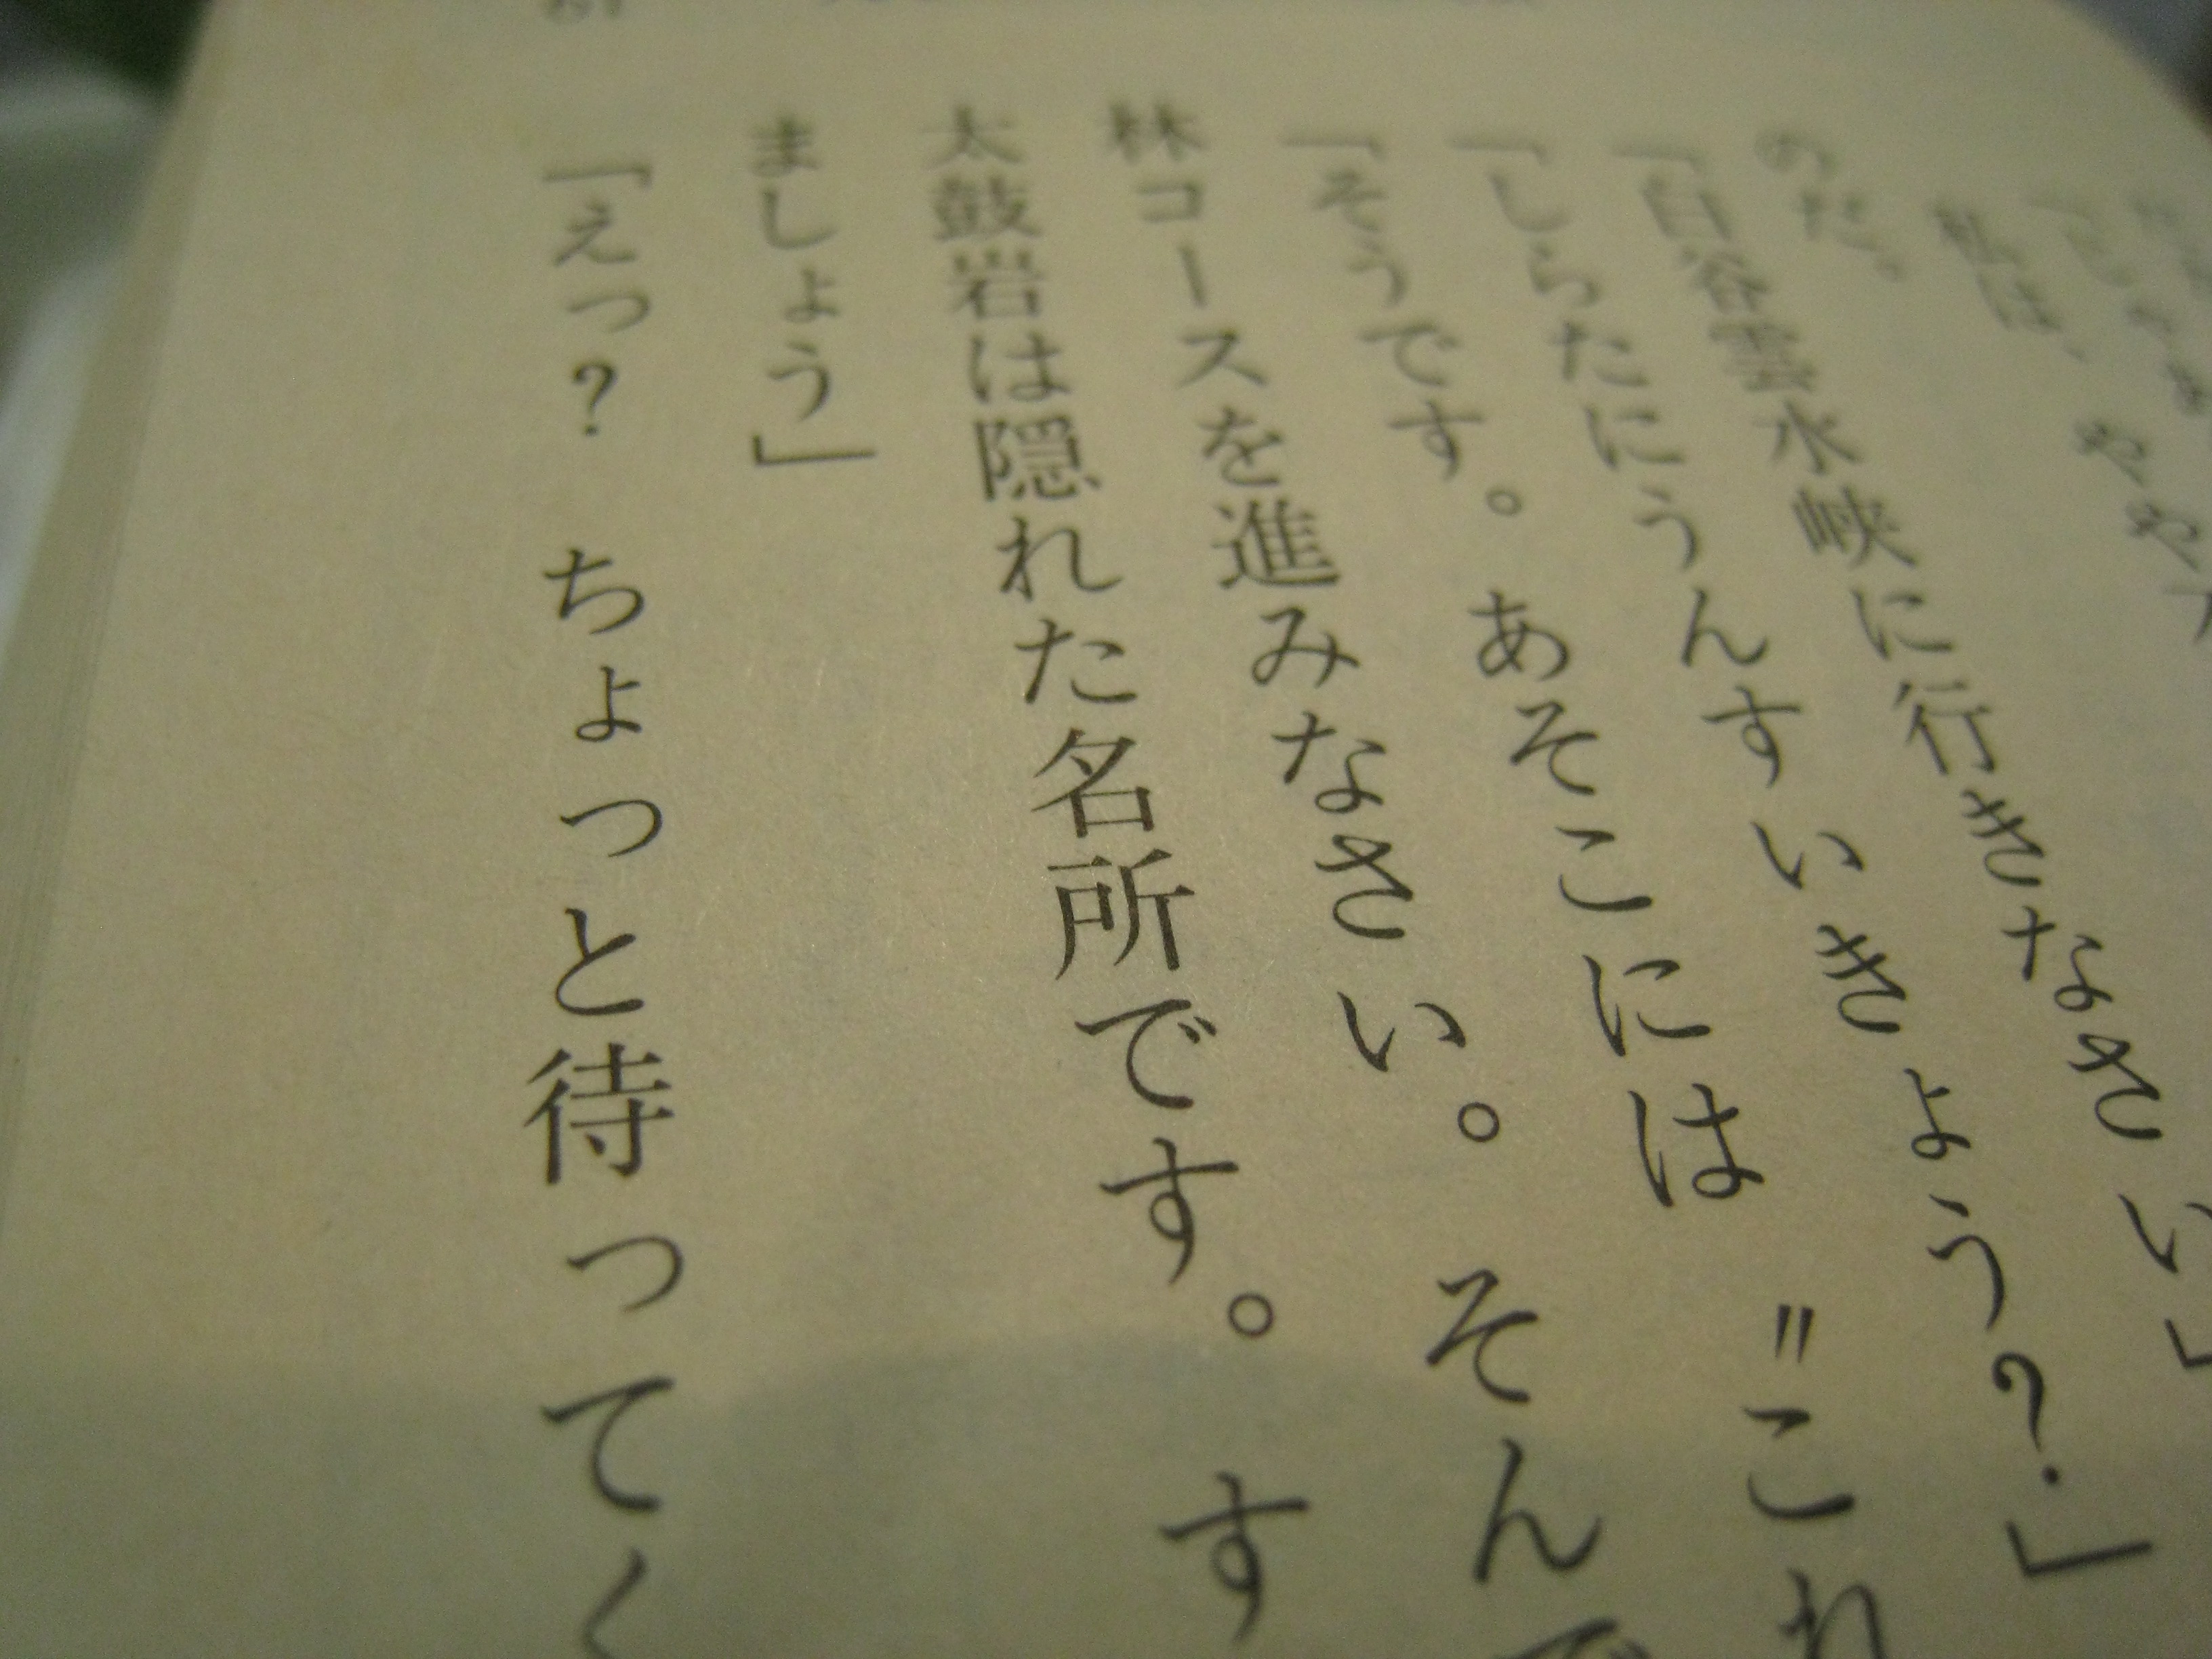 のだ。
「白谷雲水峡に行きなさい」
「しらたにうんすいきょう？」
「そうです。あそこには〝これ
林コースを進みなさい。そんで
太鼓岩は隠れた名所です。す
ましょう」
「えっ？　ちょっと待ってく